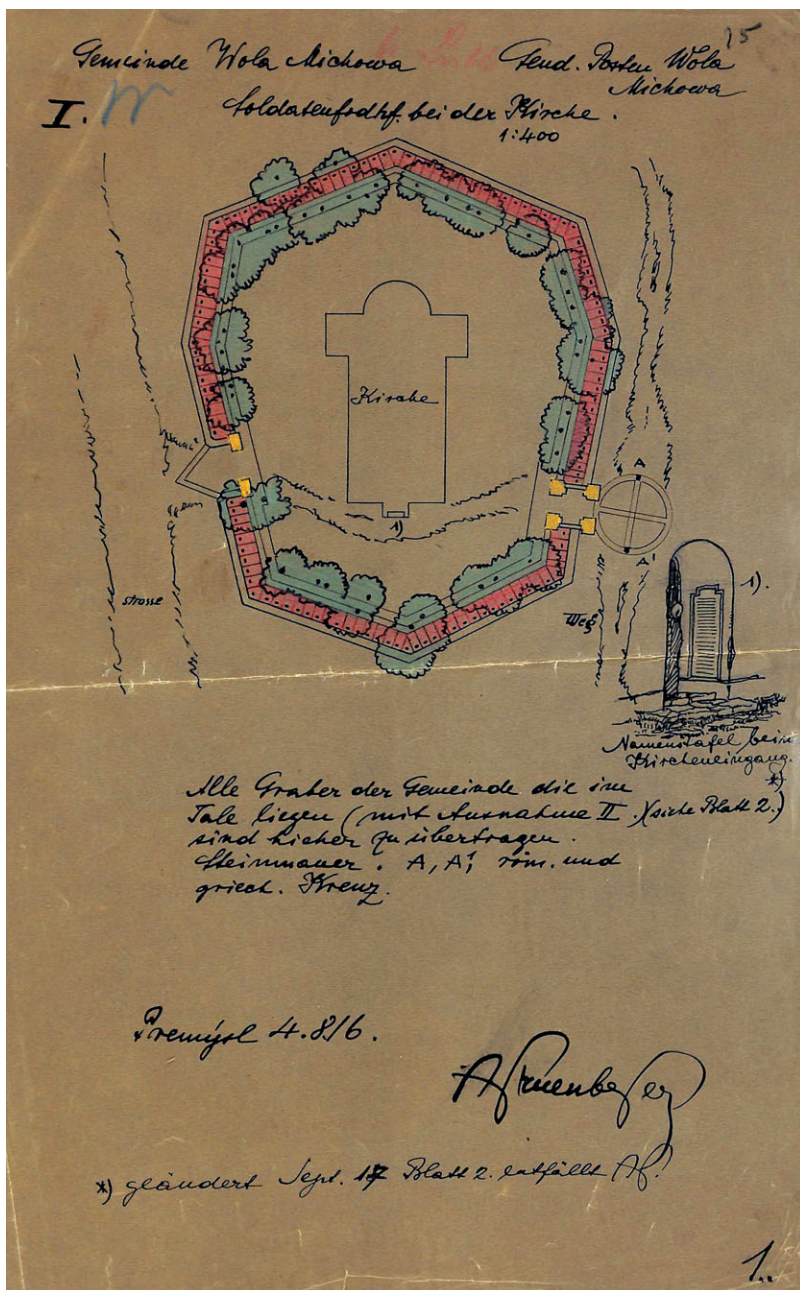 15
Gemeinde Wola Michowa Gend. Posten Wola
Michowa
I. Soldatenfrdhf. bei der Kirche.
1:400
Kirche
1)
A
A'
strasse
Weg
1).
Namenstafel beim
Kircheneingang.
*)
Alle Gräber der Gemeinde die im
Tale liegen (mit Ausnahme II.)(siehe Blatt 2.)
sind hieher zu übertragen.
Steinmauer. A, A', röm. und
griech. Kreuz.
Premýsl 4.8/6.
*) geändert Sept. 17 Blatt 2. entfällt
1.